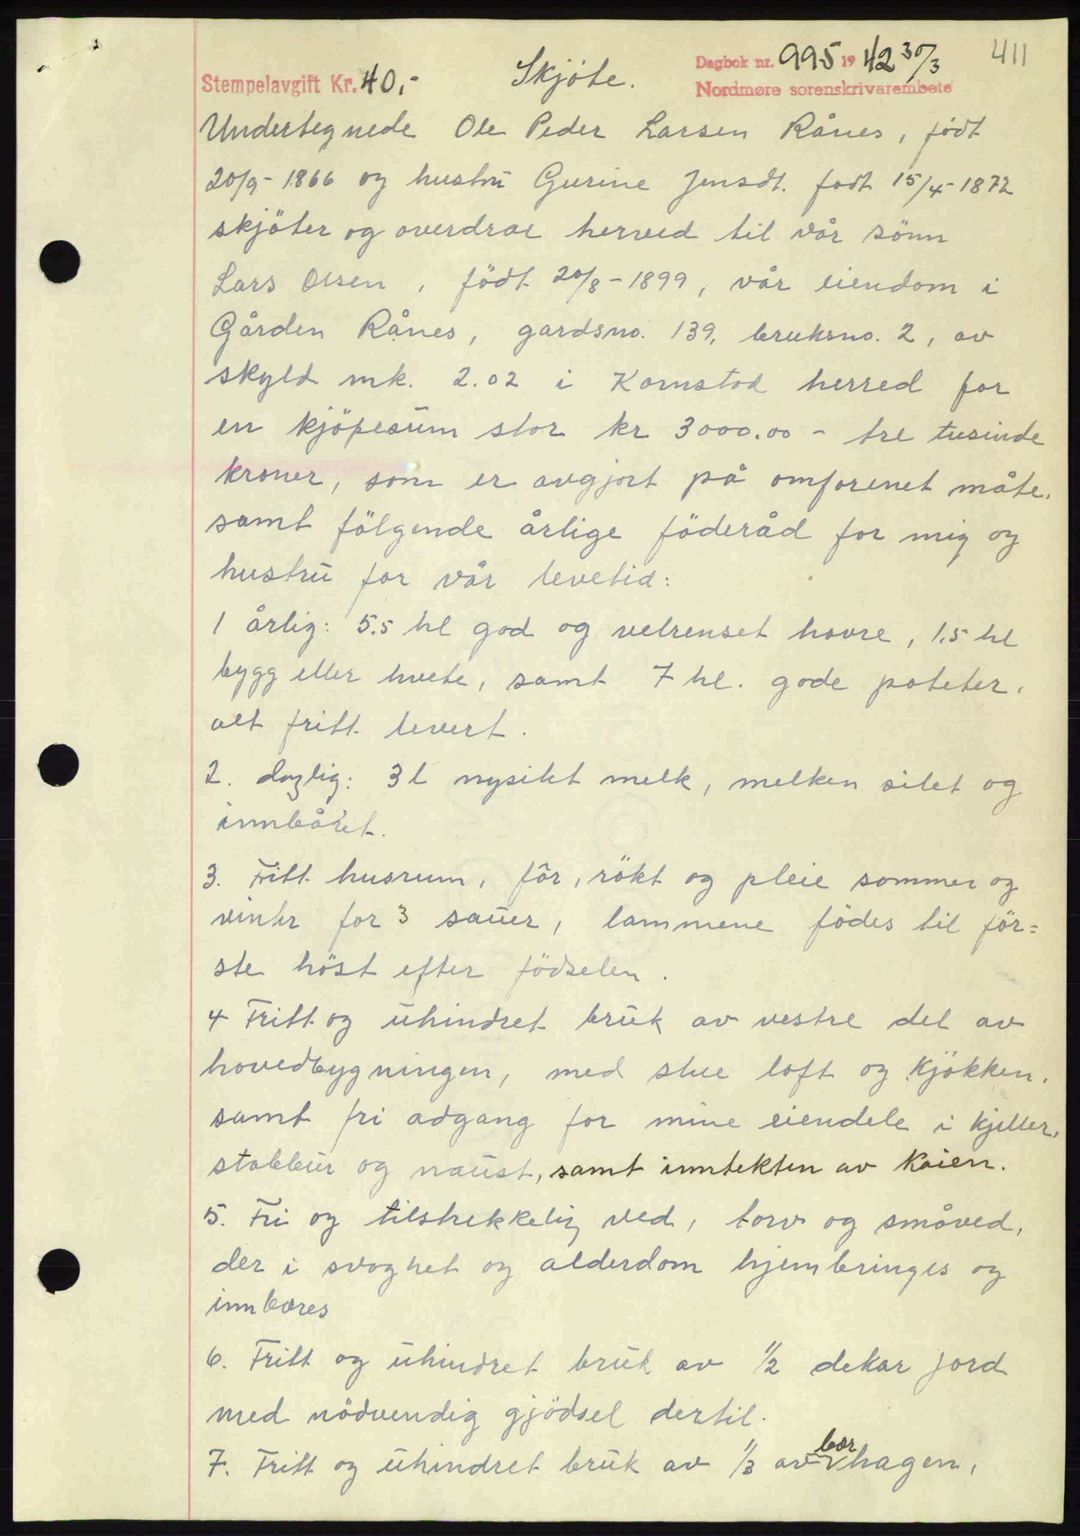 411
Dagbok nr. 995 19 42 30/3
Nordmøre sorenskrivarembete
Stempelavgift Kr. 40,-
Skjöte.
Undertegnede Ole Peder Larsen Rånes, född
20/9-1866 og hustrü Gurine Jensdt. født 15/4-1872
skjöter og overdrar herved til vår sönn
Lars Olsen, född 20/8-1899, vår eiendom i
Gården Rånes, gardsno. 139, bruksno. 2, av
skyld mk. 2.02 i Kornstad herred for
en kjöpesüm stor kr 3000.00 - tre tusinde
kroner, som er avgjort på omforenet måte,
samt fölgende årlige föderåd for mig og
hustrü for vår levetid:
1 årlig: 5.5 hl god og velrenset havre, 1.5 hl
bygg eller hvete, samt 7 hl. gode poteter,
alt fritt levert.
2. daglig: 3 l nysilet melk, melken silet og
innbåret.
3. Fritt husrum, fôr, rökt og pleie sommer og
vinter for 3 saüer, lammene födes til för=
ste höst efter födselen.
4 Fritt og ühindret brük av vestre del av
hovedbygningen, med stue loft og kjökken,
samt fri adgang for mine eiendele i kjeller,
stabbür og naüst, samt inntekten av kaien.
5. Fri og tilstrekkelig ved, torv og småved,
der i svaghet og alderdom hjembringes og
innbæres
6. Fritt og ühindret brük av 1/2 dekar jord
med nödvendig gjödsel dertil.
7. Fritt og ühindret brük av 1/3 av bærhagen,